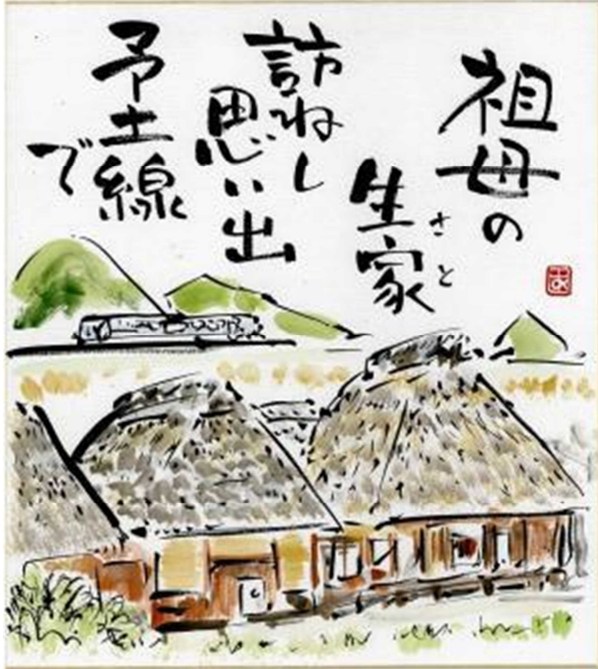 祖母の
生家
さと
訪ねし
思い出
予土線
で